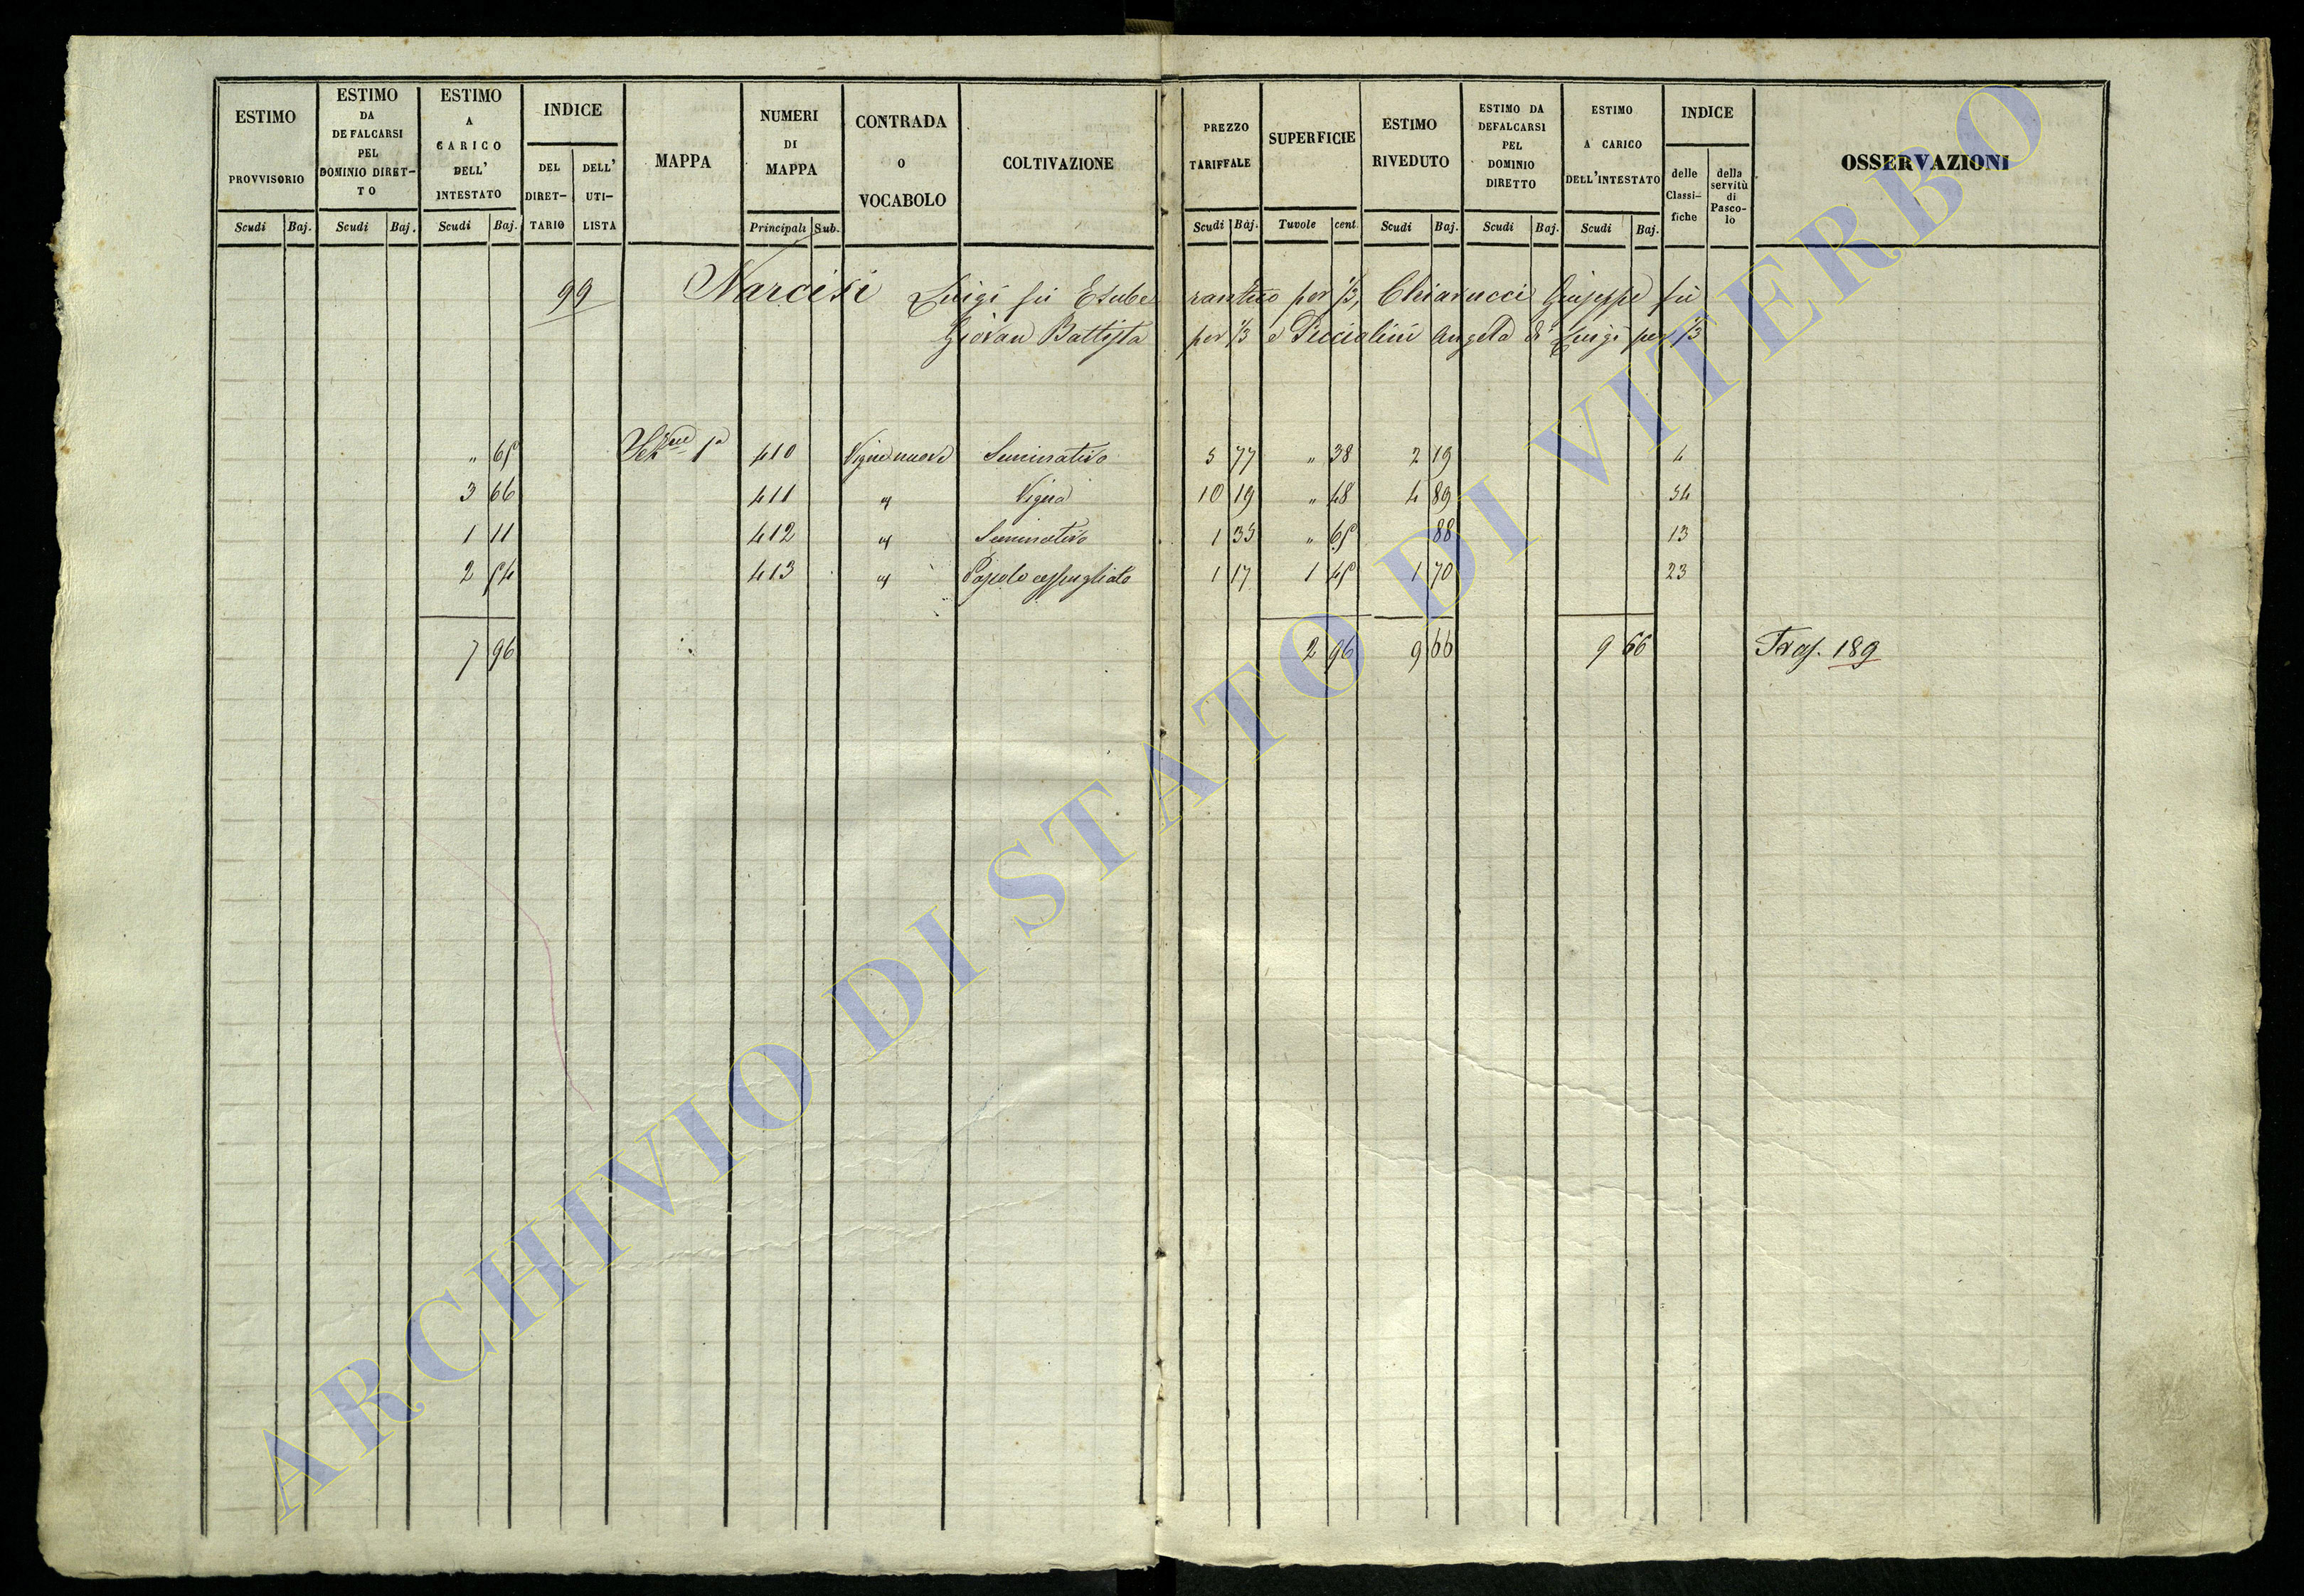 ESTIMO PROVVISORIO Scudi Baj.
ESTIMO DA DEFALCARSI PEL DOMINIO DIRET-TO Scudi Baj.
ESTIMO A CARICO DELL' INTESTATO Scudi Baj.
INDICE DEL DIRET-TARIO DELL' UTI-LISTA
MAPPA
NUMERI DI MAPPA Principali Sub.
CONTRADA O VOCABOLO
COLTIVAZIONE
PREZZO TARIFFALE Scudi Baj.
SUPERFICIE Tavole cent.
ESTIMO RIVEDUTO Scudi Baj.
ESTIMO DA DEFALCARSI PEL DOMINIO DIRETTO Scudi Baj.
ESTIMO A CARICO DELL'INTESTATO Scudi Baj.
INDICE delle Classi-fiche della servitù di Pasco-lo
OSSERVAZIONI
99 Narcisi Luigi fù Esuberantino per 1/3, Chiarucci Giuseppe fù
Giovan Battista per 1/3 e Piccialini Angela di Luigi per 1/3
" 65 1ª 410 Vigne nuove Seminativo 5 77 " 38 2 19 4
3 66 411 " Vigna 10 19 " 48 4 89 34
1 11 412 " Seminativo 1 35 " 65 88 13
2 54 413 " Pascolo cespugliato 1 17 1 45 1 70 23
7 96 2 96 9 66 9 66 Tras. 189
ARCHIVIO DI STATO DI VITERBO